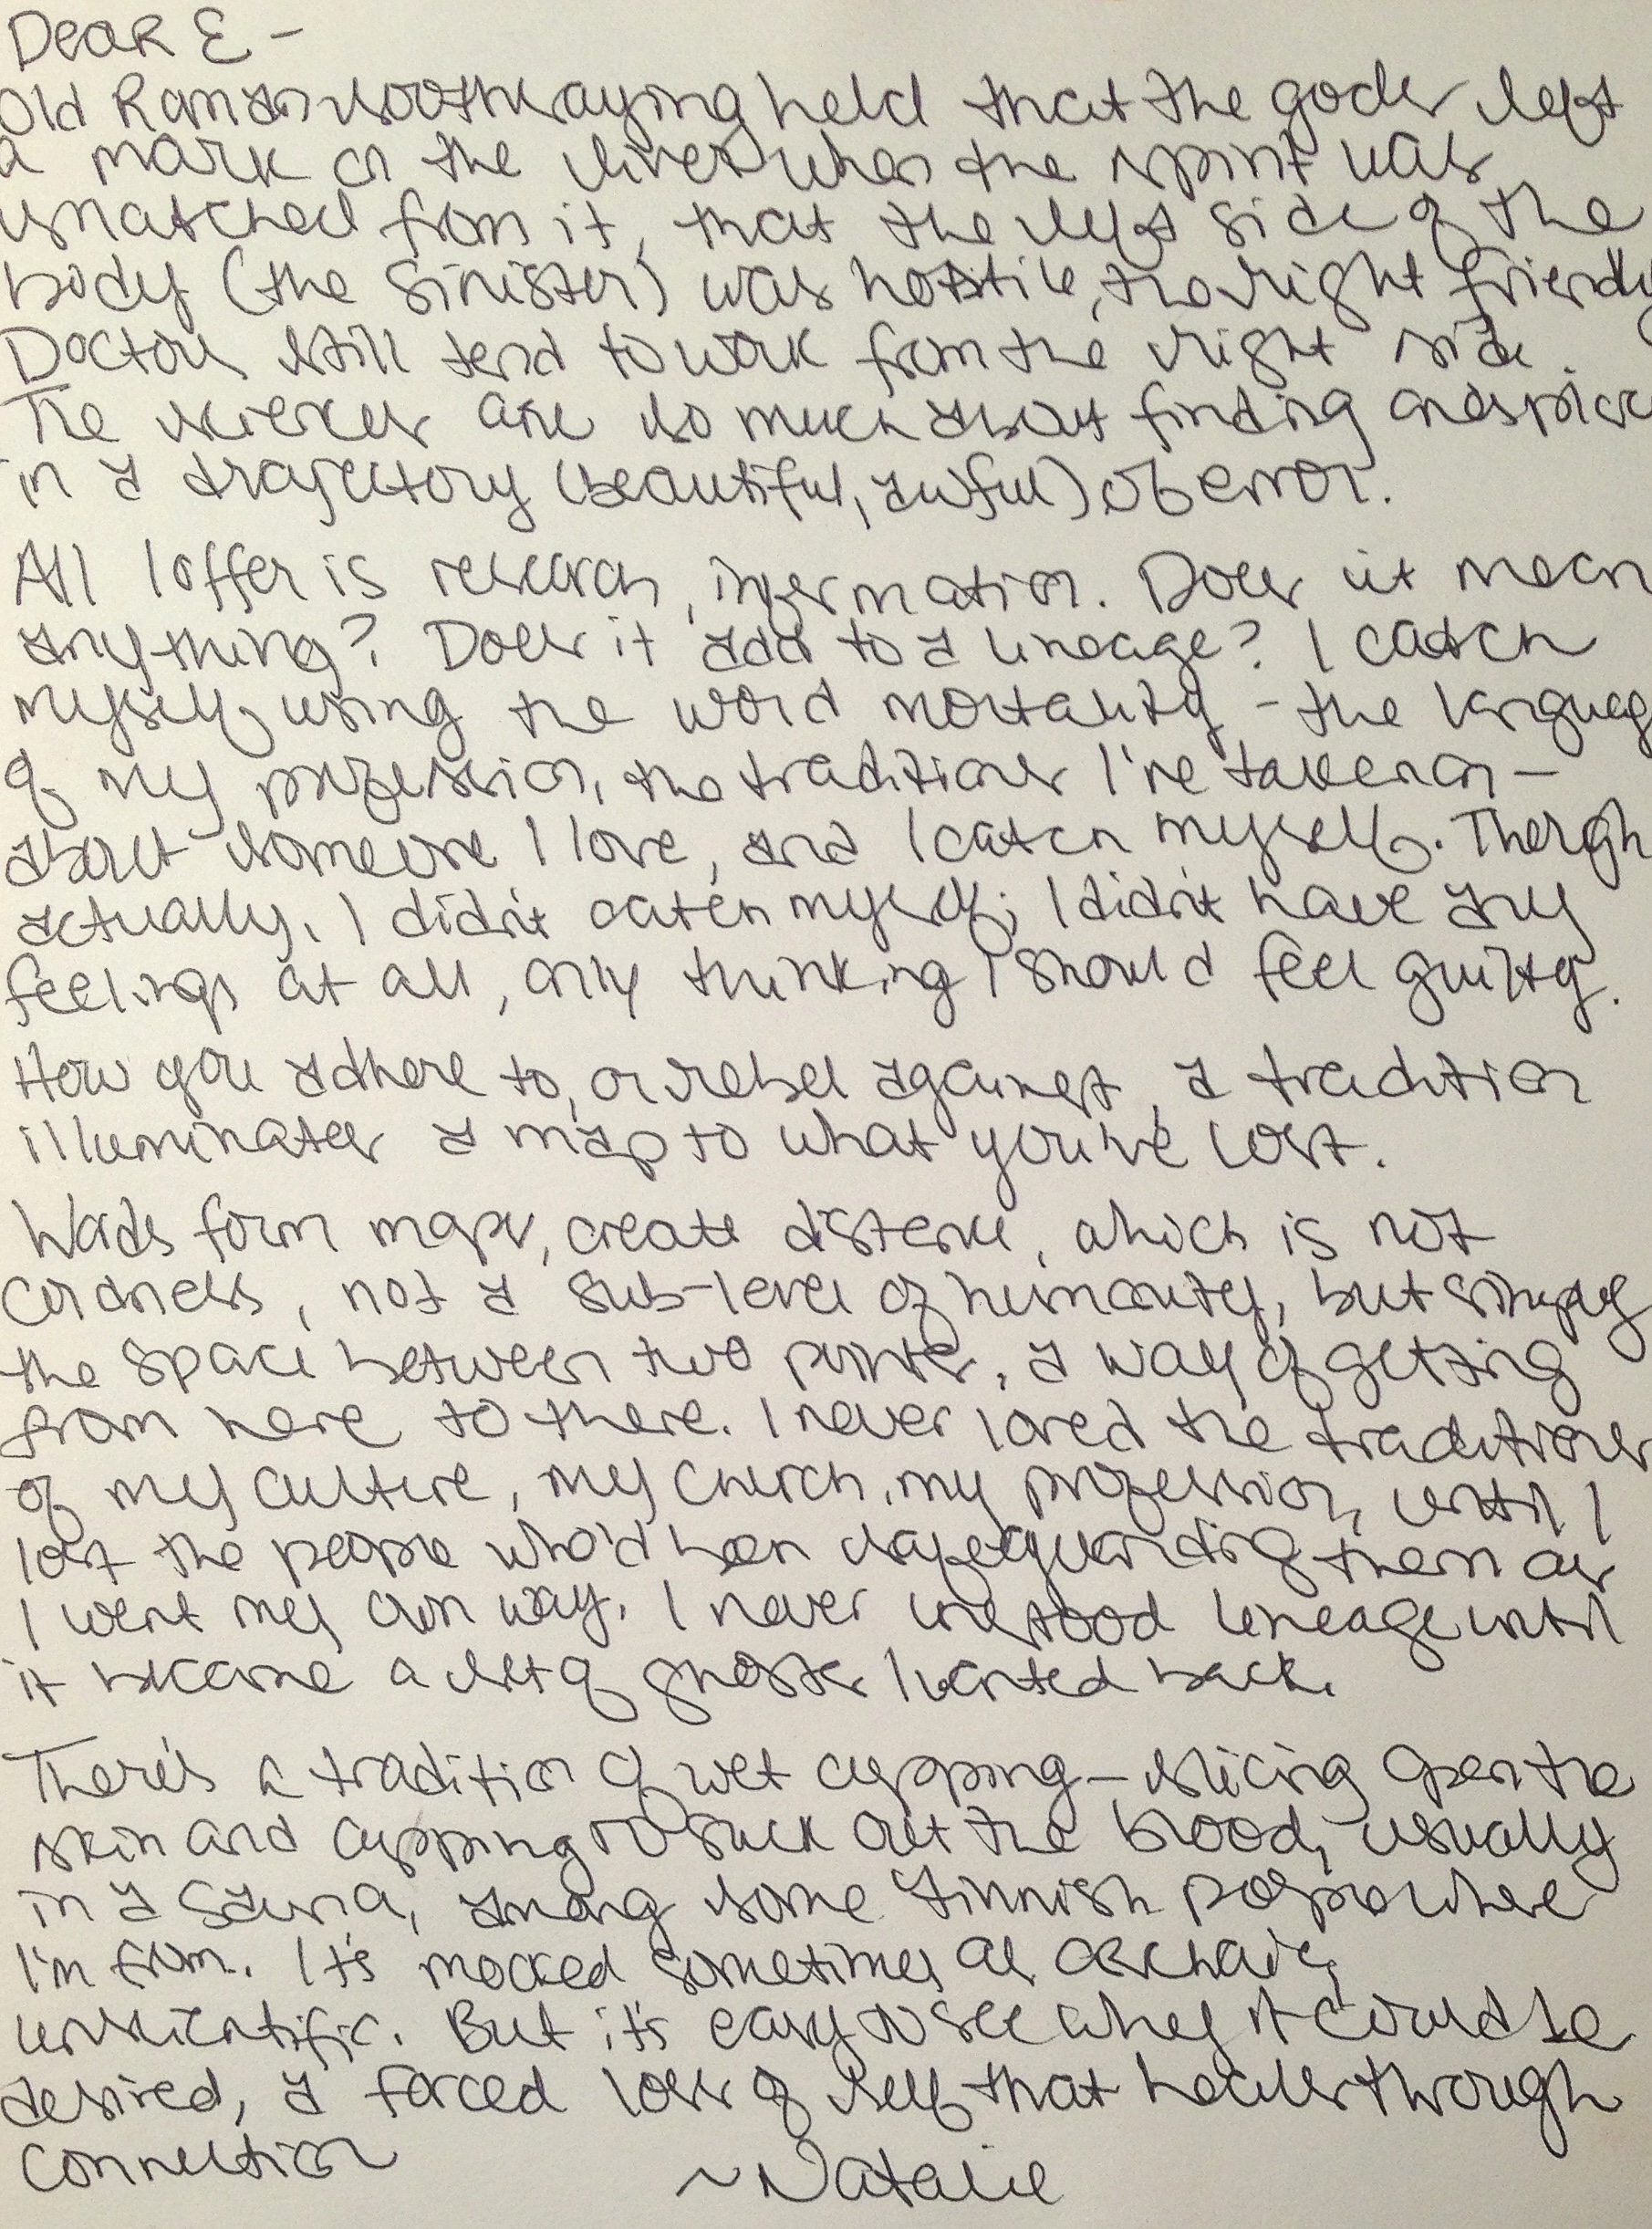 Dear E –
Old Roman soothsaying held that the gods left
a mark on the liver when the spirit was
snatched from it, that the left side of the
body (the sinister) was hostile, the right friendly
Doctors still tend to work from the right side.
The sciences are so much about finding one's place
in a trajectory (beautiful, awful) of error.
All I offer is research, information. Does it mean
anything? Does it add to a lineage? I catch
myself using the word mortality – the language
of my profession, the traditions I've taken on –
about someone I love, and I catch myself. Though
actually, I didn't catch myself; I didn't have any
feelings at all, only thinking I should feel guilty.
How you adhere to, or rebel against, a tradition
illuminates a map to what you've lost.
Words form maps, create distance, which is not
coldness, not a sub-level of humanity, but simply
the space between two points, a way of getting
from here to there. I never loved the traditions
of my culture, my church, my profession, until I
lost the people who'd been safeguarding them as
I went my own way. I never understood lineage until
it became a set of ghosts I wanted back.
There's a tradition of wet cupping – slicing open the
skin and cupping to suck out the blood, usually
in a sauna, among some Finnish people where
I'm from. It's mocked sometimes as archaic,
unscientific. But it's easy to see why it could be
desired, a forced loss of self that heals through
connection
~Natalie